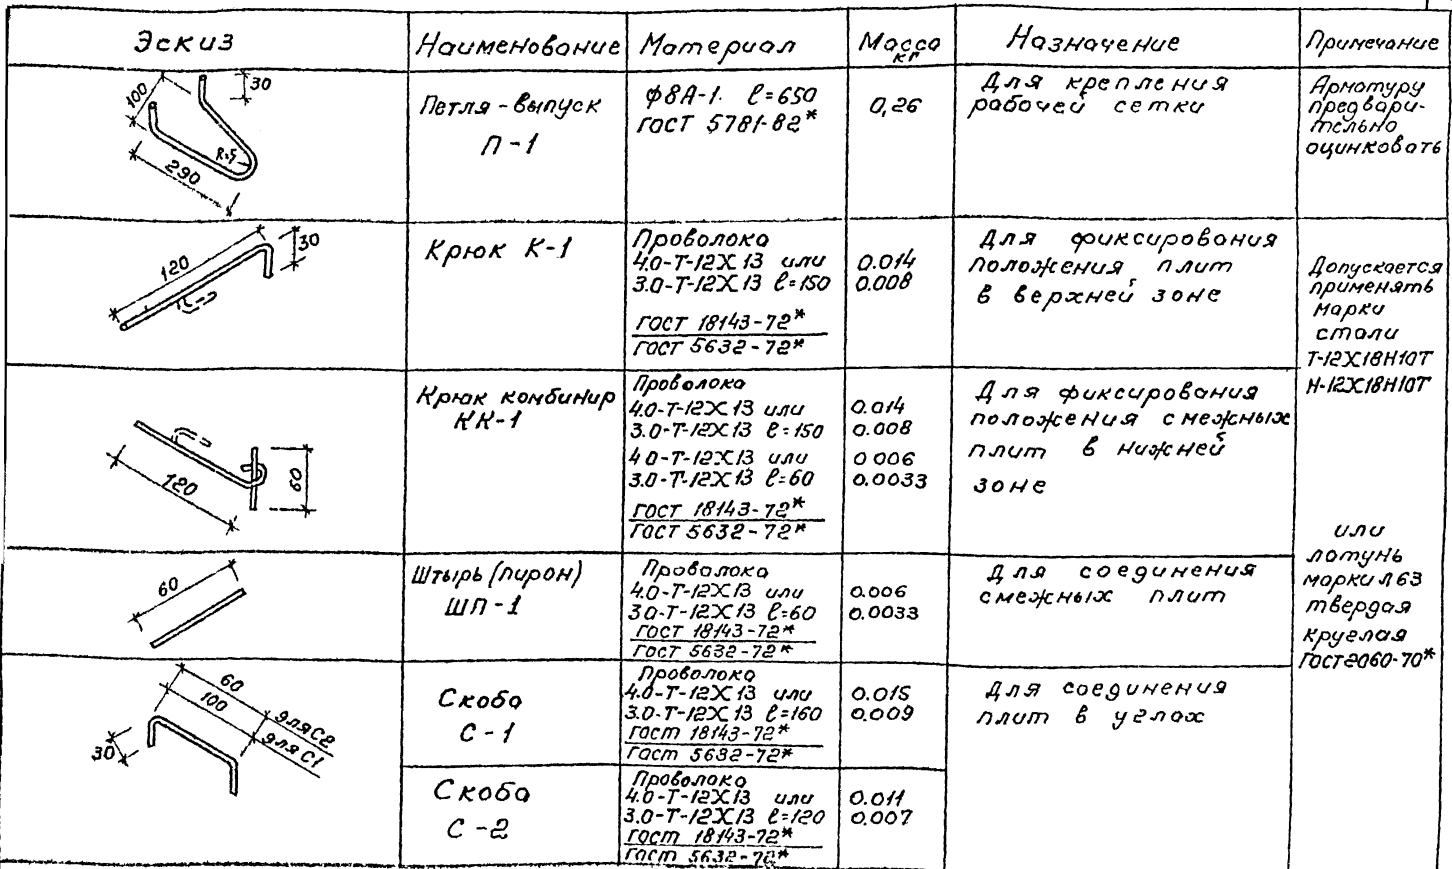 Эскиз
Наименование
Материал
Масса
кг
Назначение
Примечание
100
30
R=5
290
Петля-выпуск
П-1
ф8А-1. ℓ=650
ГОСТ 5781-82*
0,26
Для крепления
рабочей сетки
Арматуру
предвари-
тельно
оцинковать
120
30
Крюк К-1
Проволока
4.0-Т-12Х13 или
3.0-Т-12Х13 ℓ=150
ГОСТ 18143-72*
ГОСТ 5632-72*
0.014
0.008
Для фиксирования
положения плит
в верхней зоне
Допускается
применять
марки
стали
Т-12Х18Н10Т
Н-12Х18Н10Т
120
60
Крюк комбинир
КК-1
Проволока
4.0-Т-12Х13 или
3.0-Т-12Х13 ℓ=150
4 0-Т-12Х13 или
3.0-Т-12Х13 ℓ=60
ГОСТ 18143-72*
ГОСТ 5632-72*
0.014
0.008
0 006
0.0033
Для фиксирования
положения смежных
плит в нижней
зоне
или
латунь
марки Л63
твердая
круглая
ГОСТ 2060-70*
60
Штырь (пирон)
ШП-1
Проволока
4.0-Т-12Х13 или
3.0-Т-12Х13 ℓ=60
ГОСТ 18143-72*
ГОСТ 5632-72*
0.006
0.0033
Для соединения
смежных плит
60
100
для С2
для С1
30
Скоба
С-1
Проволока
4.0-Т-12Х13 или
3.0-Т-12Х13 ℓ=160
ГОСТ 18143-72*
ГОСТ 5632-72*
0.015
0.009
Для соединения
плит в углах
Скоба
С-2
Проволока
4.0-Т-12Х13 или
3.0-Т-12Х13 ℓ=120
ГОСТ 18143-72*
ГОСТ 5632-72*
0.011
0.007